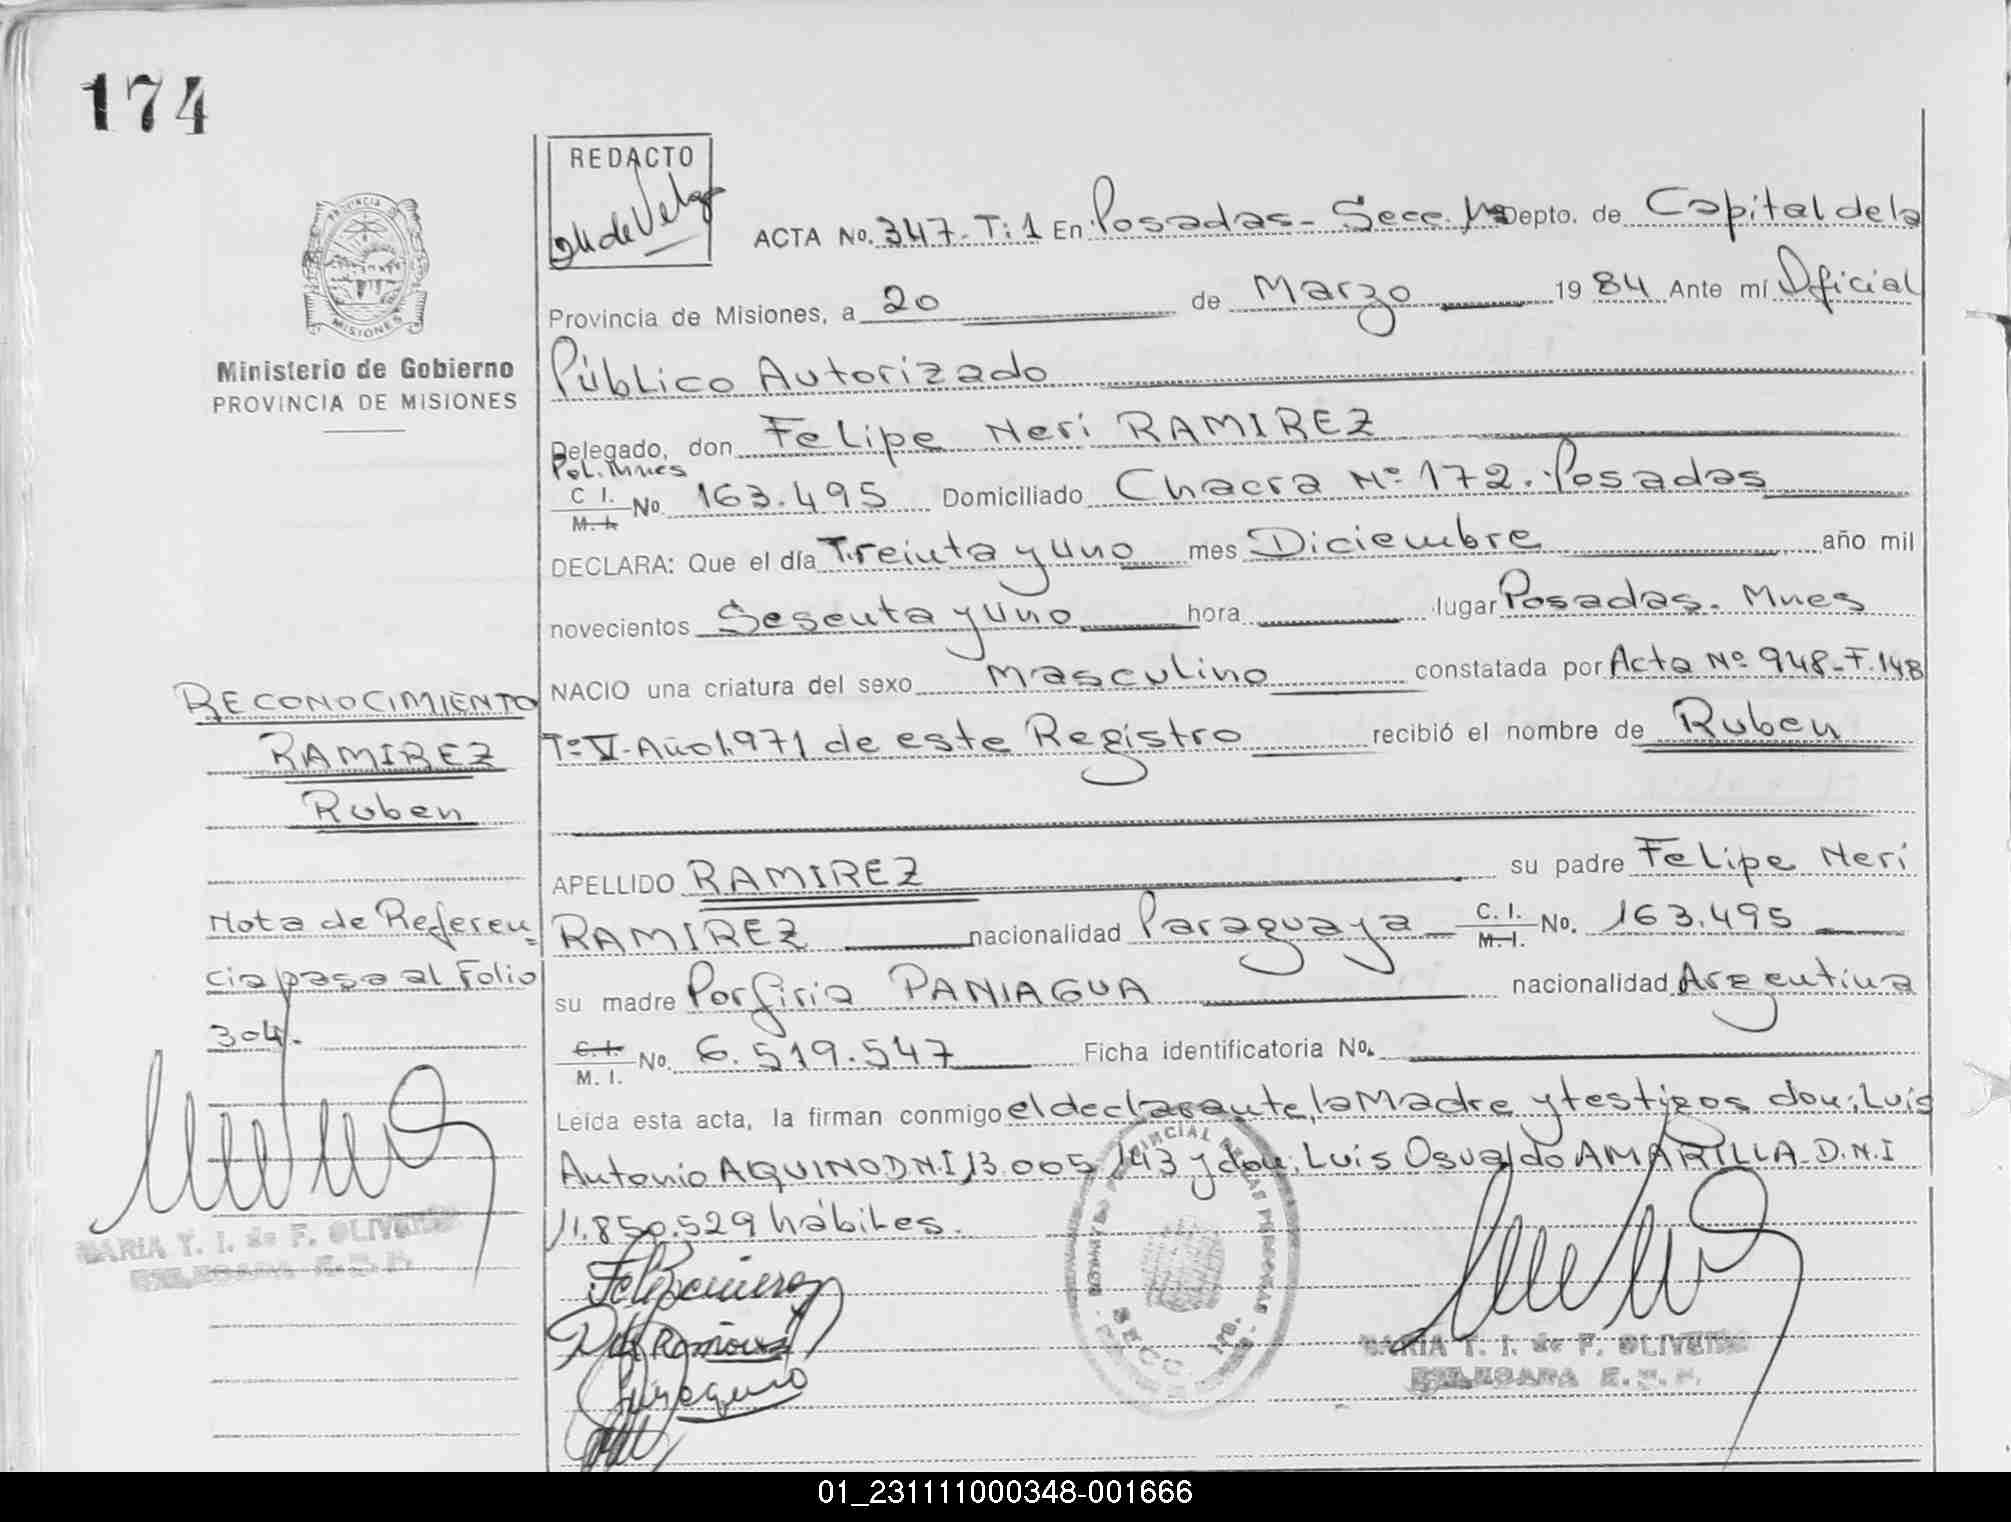 174
REDACTO
de Velaz
ACTA No. 347-T:1 En Posadas-Secc. Depto. de Capital de la
Provincia de Misiones, a 20 de Marzo 1984 Ante mí Oficial
Público Autorizado
Delegado, don Felipe Neri RAMIREZ
Pol. Mnes
C I.
M. I. No. 163.495 Domiciliado Chacra Nº 172. Posadas
DECLARA: Que el día Treinta y Uno mes Diciembre año mil
novecientos Sesenta y Uno hora lugar Posadas. Mnes
NACIO una criatura del sexo Masculino constatada por Acta Nº 948-F.148
Tº V-Año 1.971 de este Registro recibió el nombre de Ruben
APELLIDO RAMIREZ su padre Felipe Neri
RAMIREZ nacionalidad Paraguaya C. I. M. I. No. 163.495
su madre Porfiria PANIAGUA nacionalidad Argentina
C. I. M. I. No. 6.519.547 Ficha identificatoria No.
Leída esta acta, la firman conmigo el declarante, la Madre y testigos don; Luis
Antonio AQUINO D.N.I 13.005.143 y don; Luis Osvaldo AMARILLA D.N.I
11.850.529 hábiles.
PROVINCIA DE
MISIONES
Ministerio de Gobierno
PROVINCIA DE MISIONES
RECONOCIMIENTO
RAMIREZ
Ruben
Nota de Referen=
cia pasa al Folio
304.
MARIA T. I. de F. OLIVEIRA
DELEGADA
MARIA T. I. de F. OLIVEIRA
DELEGADA
SECC.
01_231111000348-001666